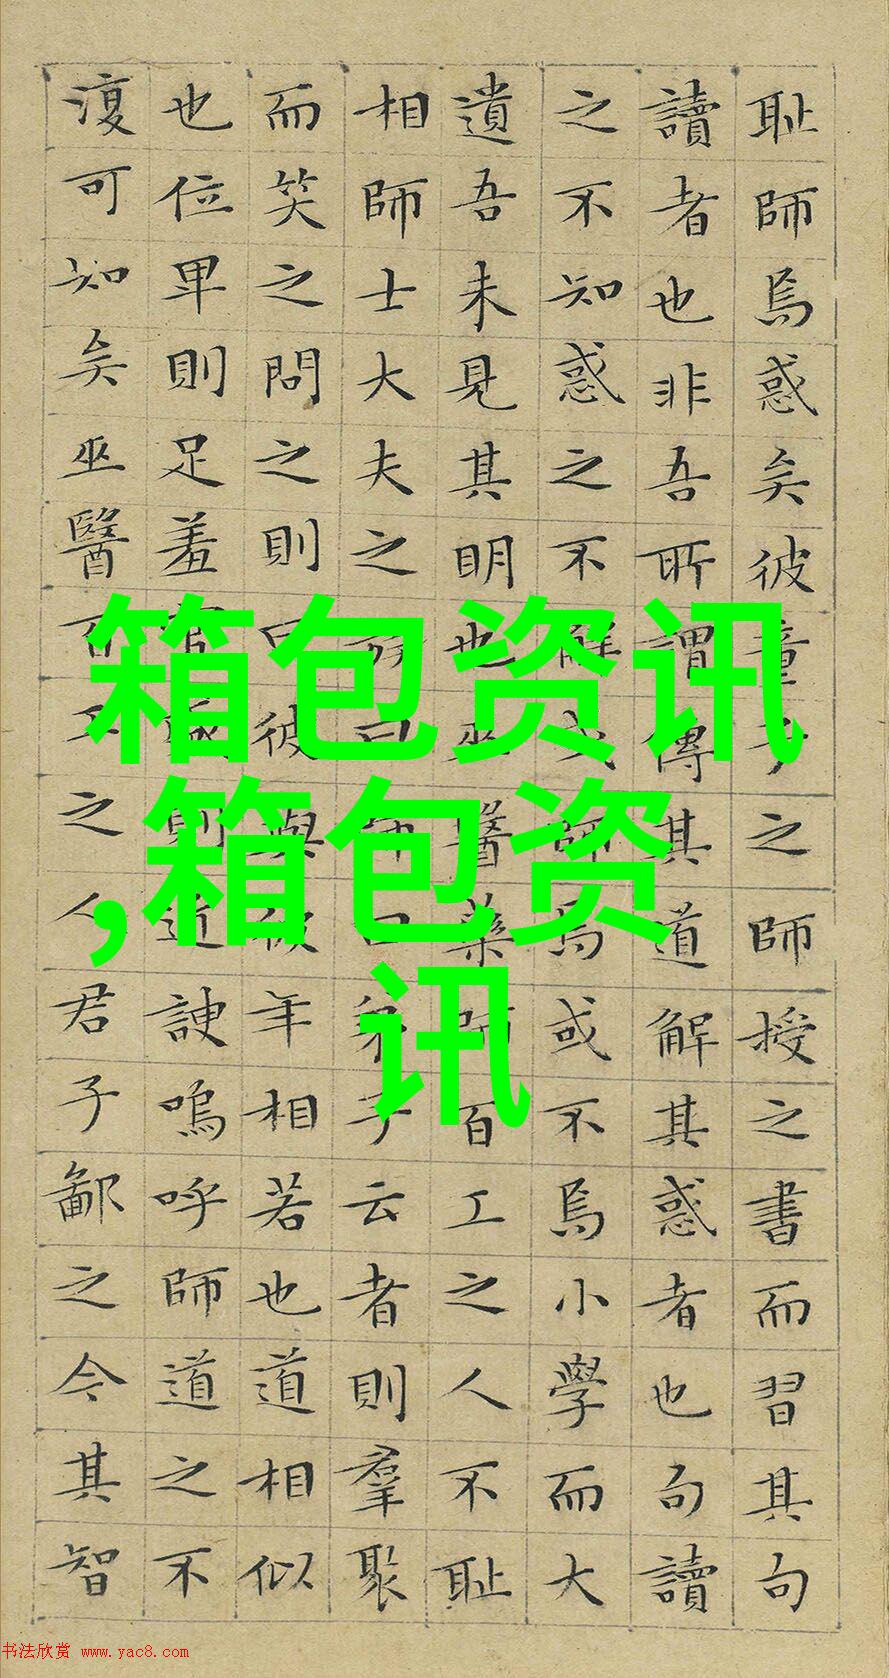 耻師焉惑矣彼童子之師授之書而習其句
讀者也非吾所謂傳其道解其惑者也句讀
之不知惑之不解或師焉或不焉小學而大
遺吾未見其明也巫醫藥師百工之人不耻
相師士大夫之族曰師曰弟子云者則羣聚
而笑之問之則曰彼與彼年相若也道相似
也位卑則足羞官盛則近諛嗚呼師道之不
復可知矣巫醫百之人君子鄙之今其智
箱包资讯
,箱包资
讯
书法欣赏 www.yac8.com